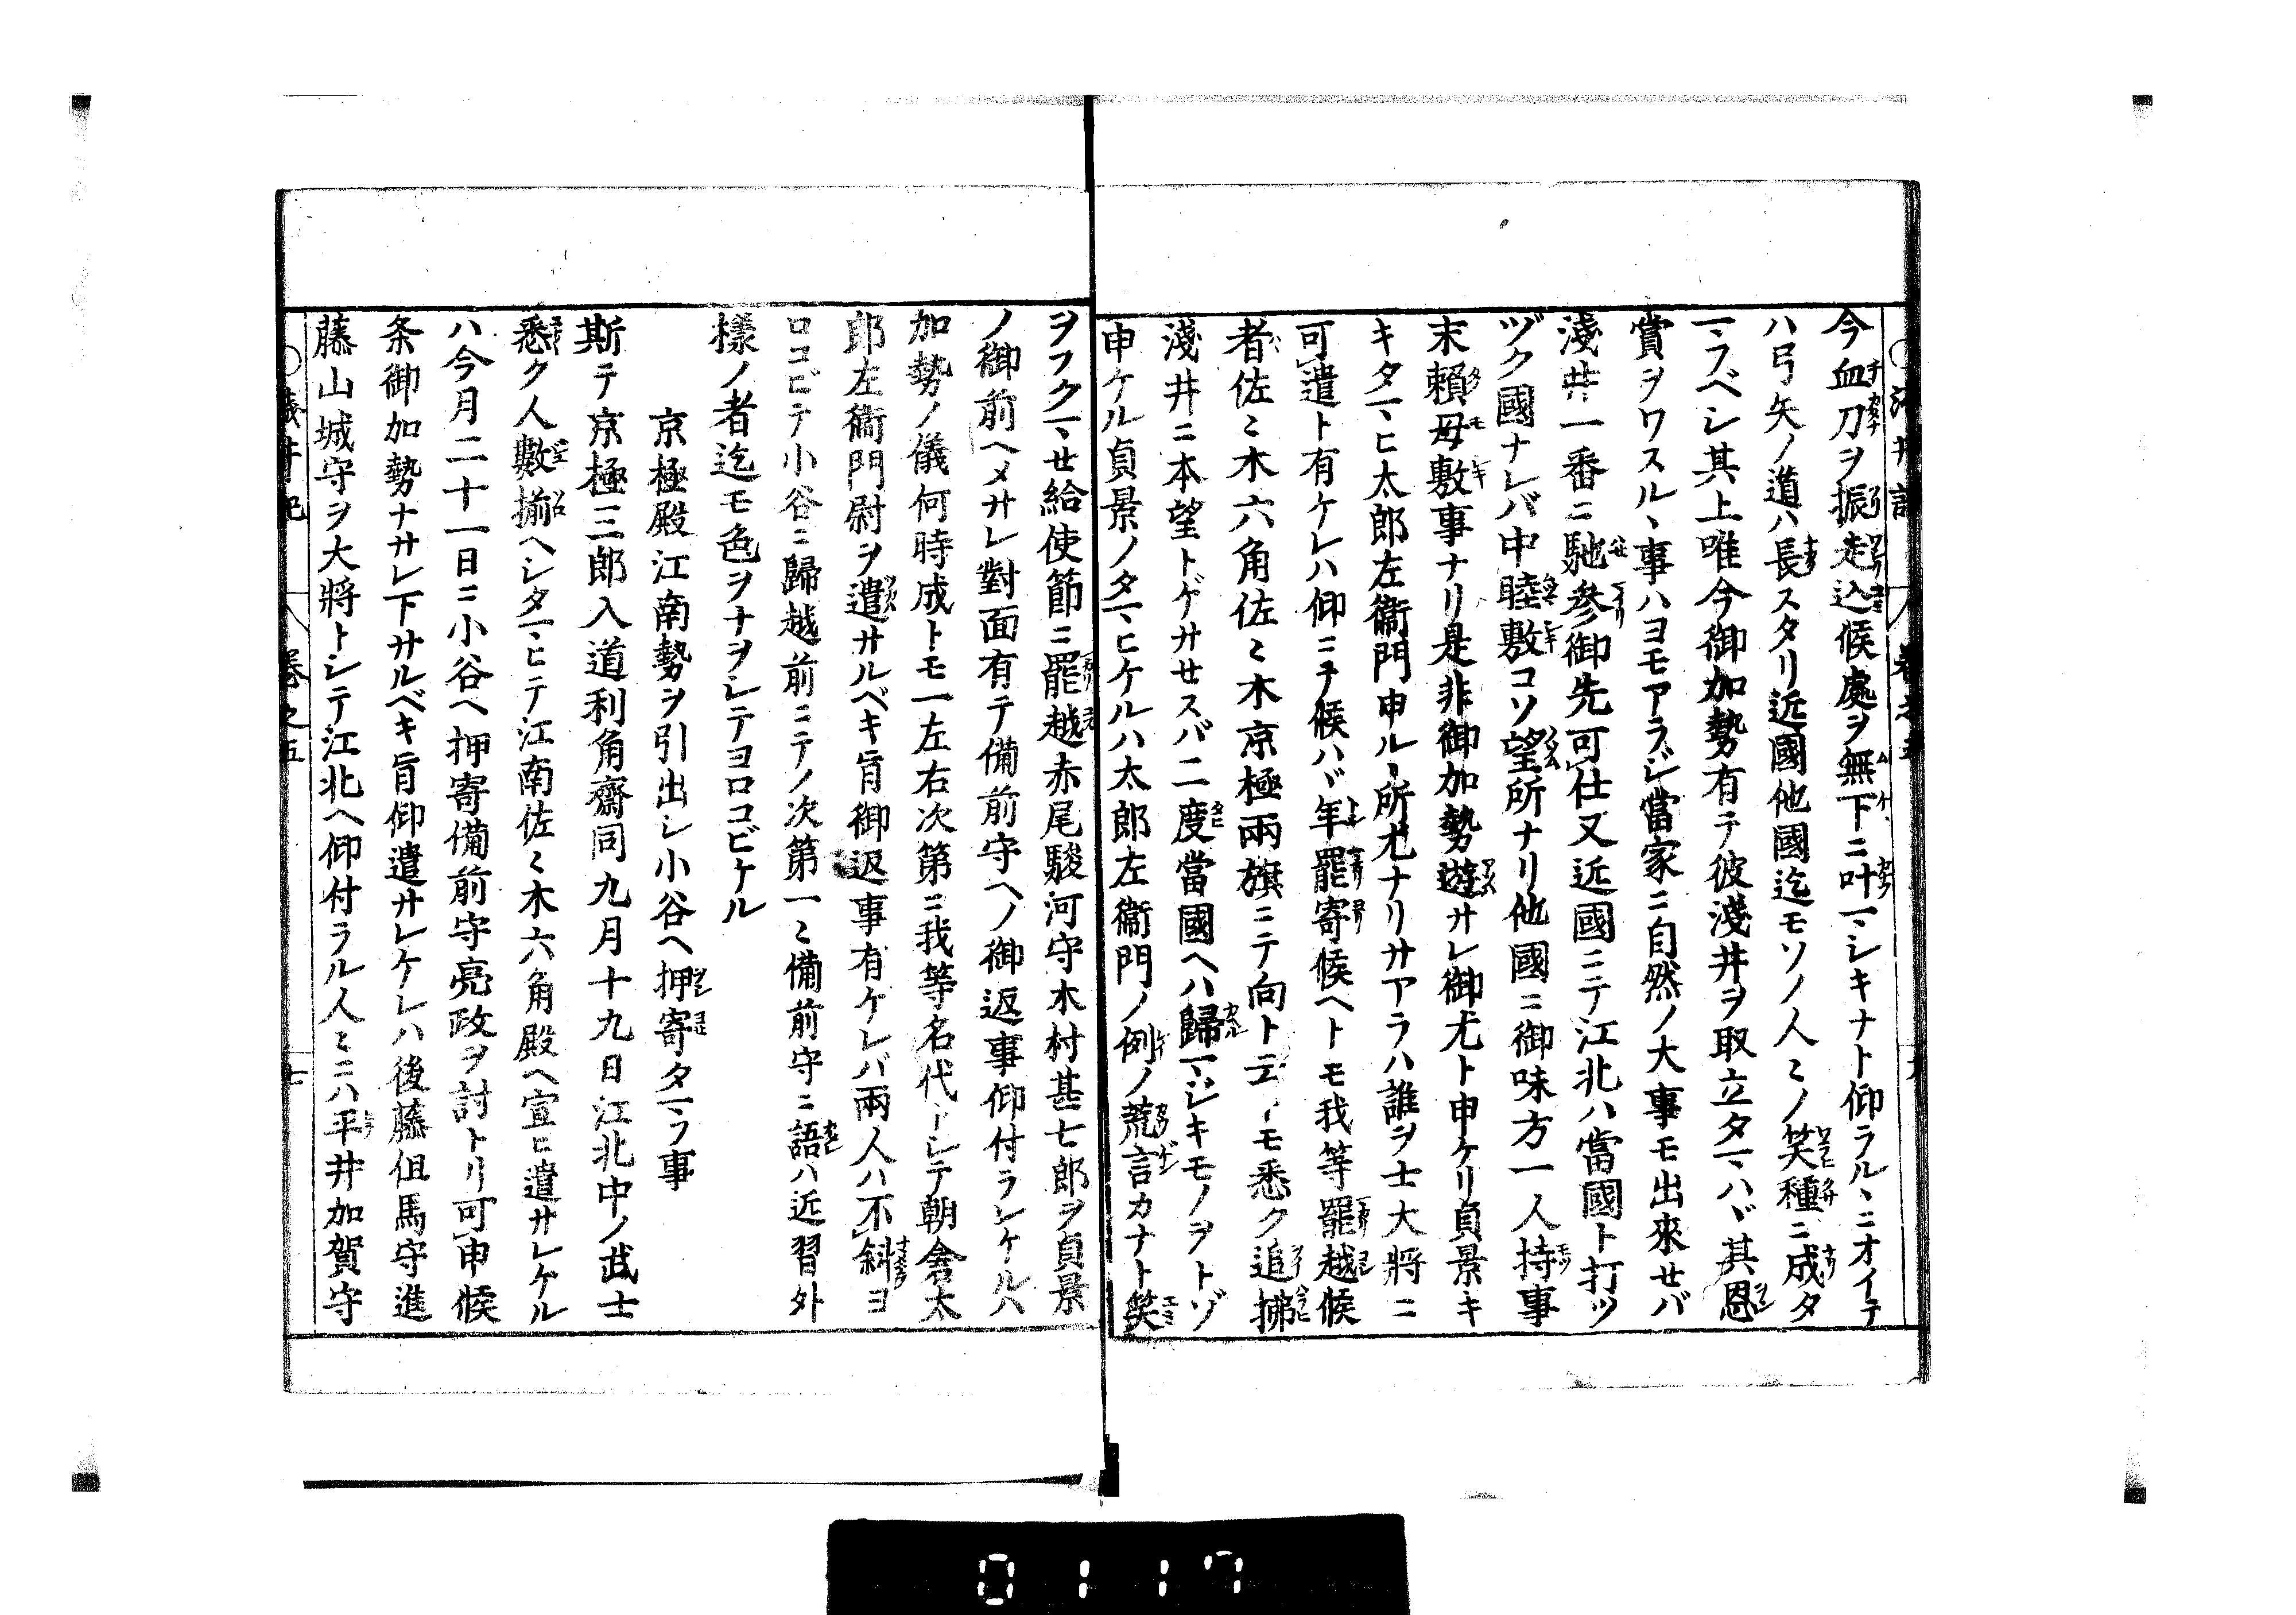 今血刀ヲ振走込候處ヲ無下ニ叶マヽシキナト仰ラルヽニオイテ
ハ弓矢ノ道ハ長スタリ近國他國迄モソノ人〻ノ笑種ニ成タ
マヽフベシ其上唯今御加勢有テ彼淺井ヲ取立タマヽハヾ其恩
賞ヲワスルヽ事ハヨモアラジ當家ニ自然ノ大事モ出來セバ
淺井一番ニ馳参御先可仕又近國ニテ江北ハ當國ト打ツ
ヅク國ナレバ中睦敷コソ望所ナリ他國ニ御味方一人持事
末頼母敷事ナリ是非御加勢遊サレ御尤ト申ケリ貞景キ
キタマヽヒ太郎左衛門申ルヽ所尤ナリサアラハ誰ヲ士大將ニ
可遣ト有ケレハ仰ニテ候ハヾ年罷寄候ヘトモ我等罷越候
者佐〻木六角佐〻木京極兩旗ニテ向ト云トモ悉ク追拂
淺井ニ本望トゲサセスバ二度當國ヘハ歸マヽジキモノヲトゾ
申ケル貞景ノタマヽヒケルハ太郎左衛門ノ例ノ荒言カナト笑
ヲフクマヽせ給使節ニ罷越赤尾駿河守木村甚七郎ヲ貞景
ノ御前ヘメサレ對面有テ備前守ヘノ御返事仰付ラレケルハ
加勢ノ儀何時成トモ一左右次第ニ我等名代トシテ朝倉太
郎左衛門尉ヲ遣サルベキ旨御返事有ケレバ兩人ハ不斜ヨ
ロコビテ小谷ニ歸越前ニテノ次第一〻備前守ニ語ハ近習外
樣ノ者迄モ色ヲナヲシテヨロコビケル
京極殿江南勢ヲ引出シ小谷ヘ押寄タマヽフ事
斯テ京極三郎入道利角齋同九月十九日江北中ノ武士
悉ク人數揃ヘシタマヽヒテ江南佐〻木六角殿ヘ宣ヒ遣サレケル
ハ今月二十一日ニ小谷ヘ押寄備前守亮政ヲ討トリ可申候
条御加勢ナサレ下サルベキ旨仰遣サレケレハ後藤但馬守進
藤山城守ヲ大將トシテ江北ヘ仰付ラル人〻ニハ平井加賀守
○淺井記 巻之五 七
0117